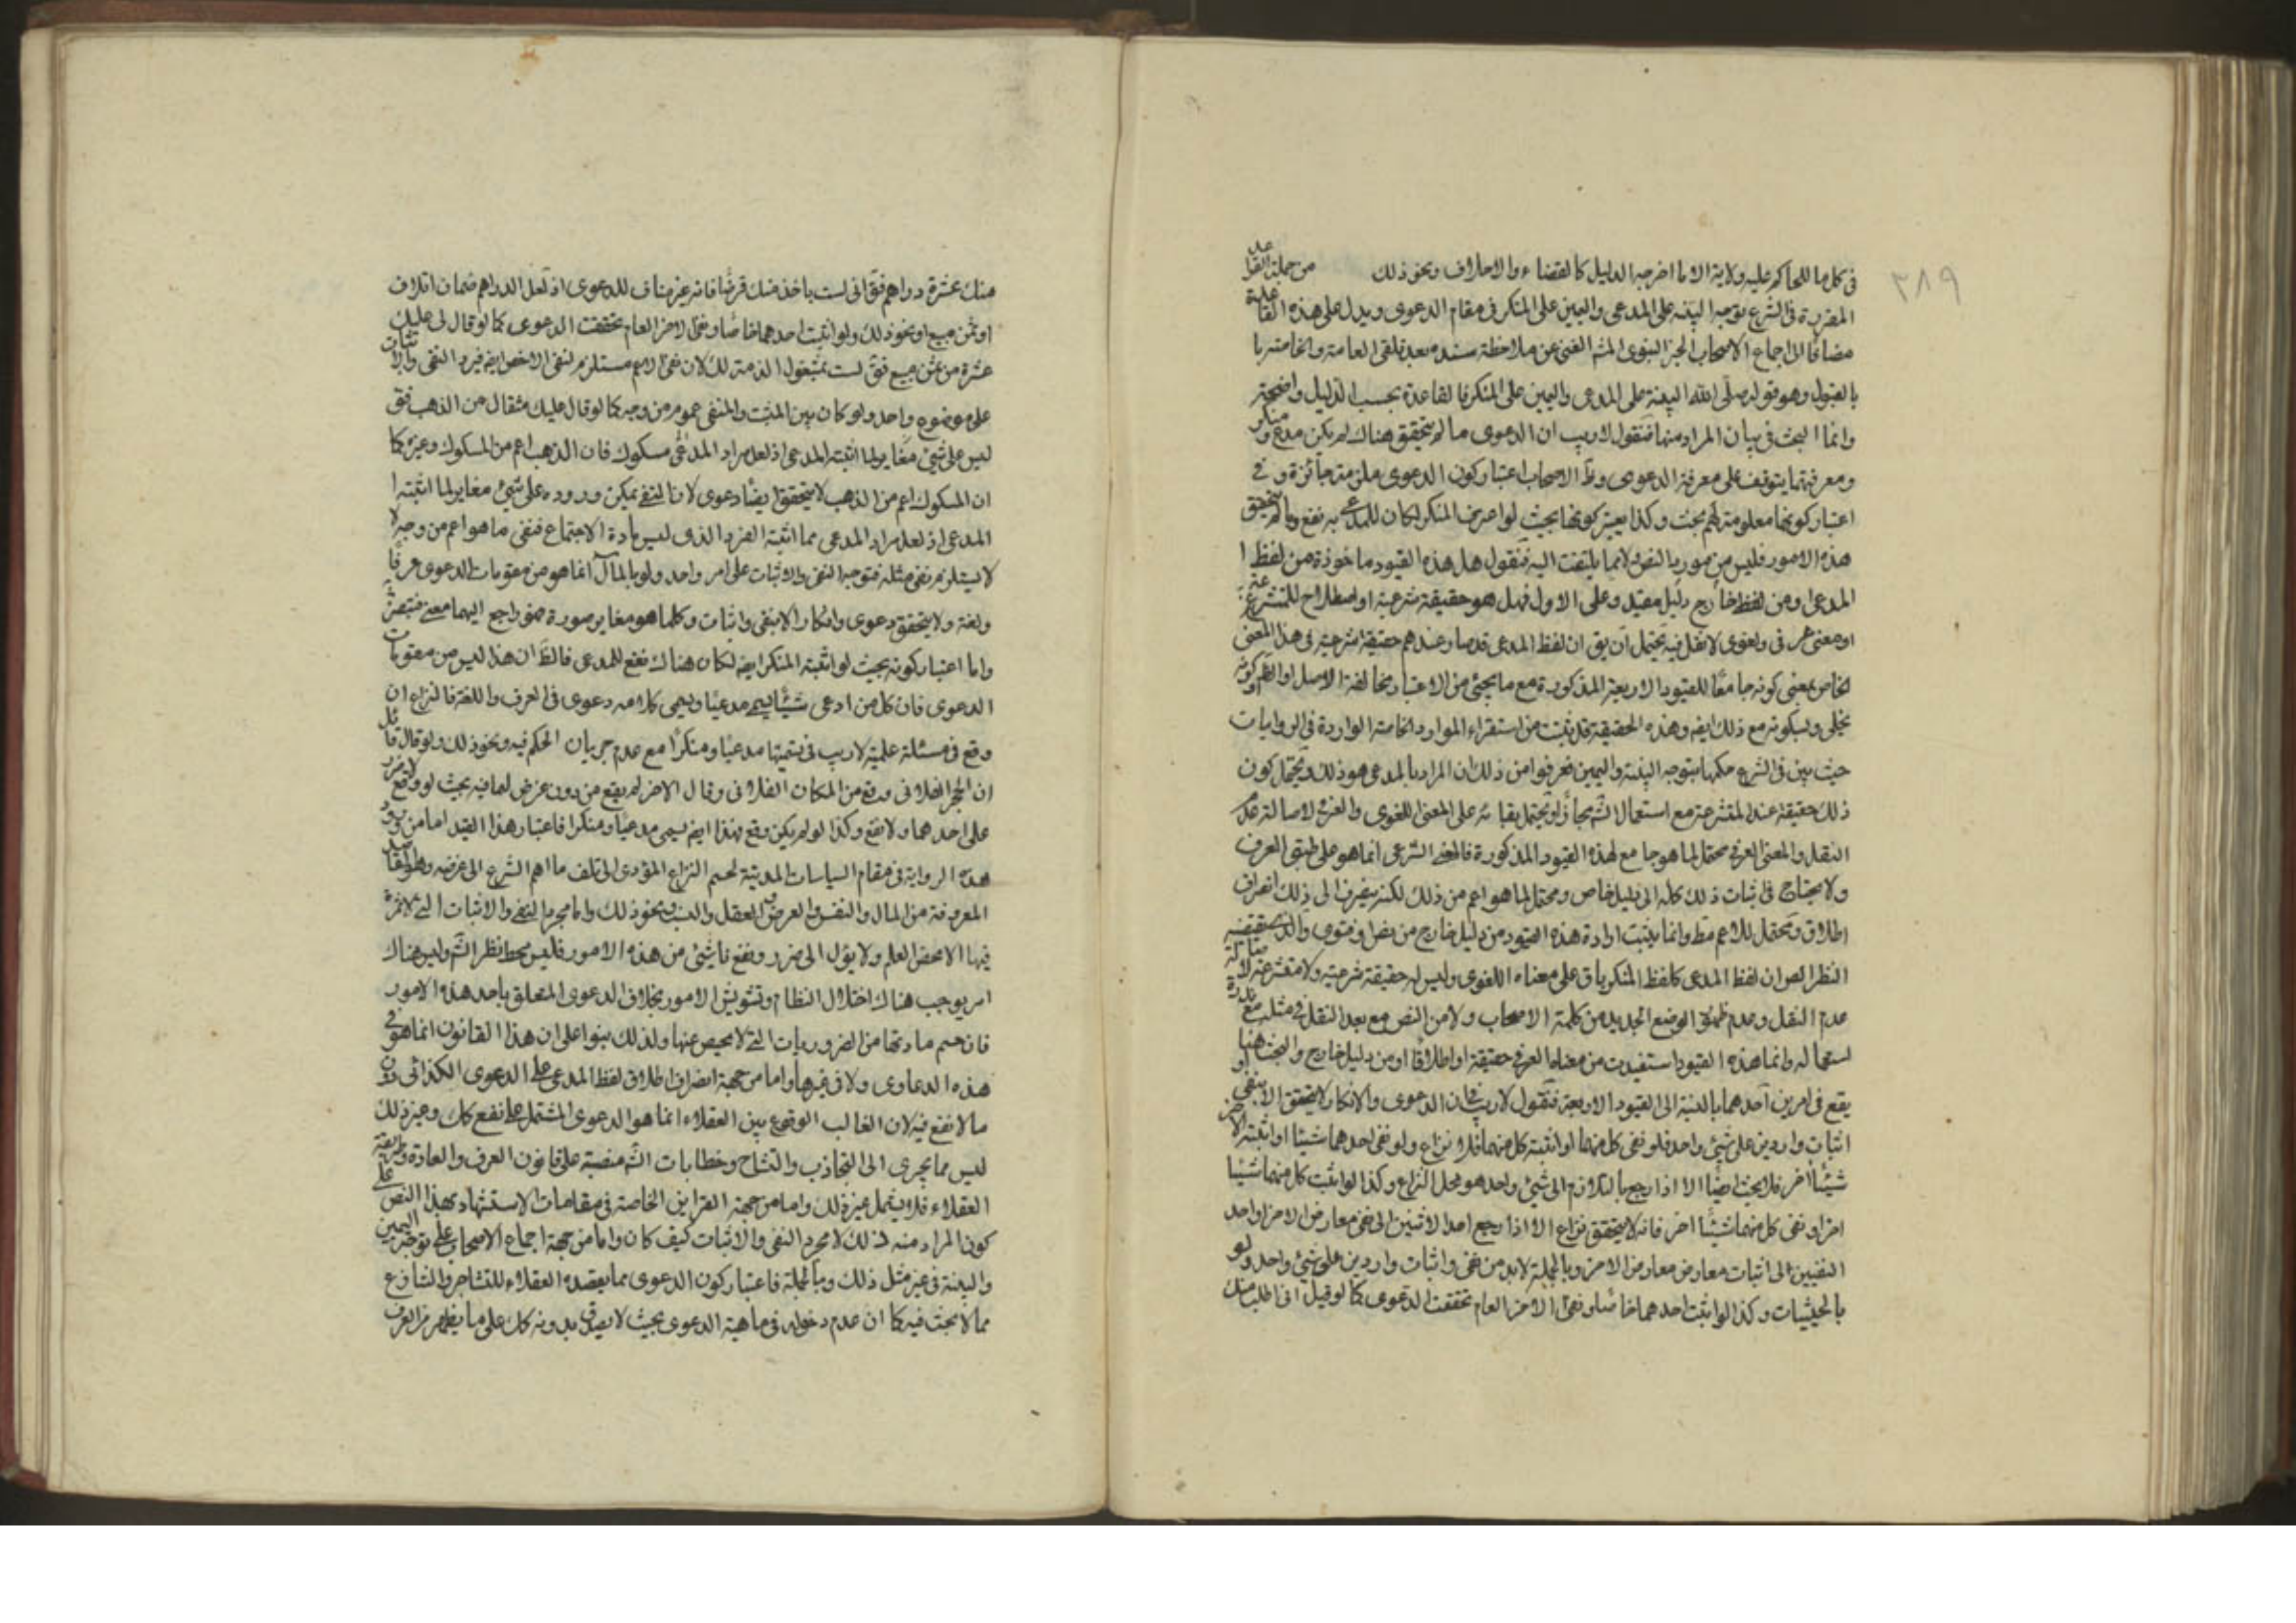 ٣٨٩
في كل ما للحاكم عليه ولاية الا ما اخرجه الدليل كالقضاء والاحلاف ونحو ذلك من جملة القواعد
المقررة في الشرع توجه البينة على المدعي واليمين على المنكر في مقام الدعوى ويدل على هذه القاعدة
مضافا الى اجماع الاصحاب الخبر النبوي المش الغني عن ملاحظة سنده بعد تلقي العامة والخاصة با
بالقبول وهو قوله صلى الله البينة على المدعي واليمين على المنكر فالقاعدة بحسب الدليل واضحة
وانما البحث في بيان المراد منها فنقول لا ريب ان الدعوى ما لم يتحقق هناك لم يكن مدع ومنكر
ومعرفتهما يتوقف على معرفة الدعوى الاصحاب اعتبار كون الدعوى ملزمة جائزة وفي
اعتبار كونها معلومة لهم بحث وكذا يعتبر كونها بحيث لو اعترف المنكر لكان للمدعي به نفع وما لم يتحقق
هذه الامور فليس من مورد النص ولا مما يلتفت اليه فنقول هل هذه القيود ماخوذة من لفظ ا
المدعي او من لفظ خارج دليل مقيد وعلى الاول فهل هو حقيقة شرعية او اصطلاح للمتشرعة
او معنى عرفي ولغوي لا نقل فيه يحتمل ان يق ان لفظ المدعي قد صار عندهم حقيقة شرعية في هذا المعنى
الخاص بمعنى كونه جامعا للقيود الاربعة المذكورة مع ما يجئ من الاعتبار مخالفة الاصل او الظ او كونه
يخلى وسكوته مع ذلك ايض وهذه الحقيقة قد ثبتت من استقراء الموارد الخاصة الواردة في الروايات
حيث بين في الشرع حكمها بتوجه البينة واليمين فعرفوا من ذلك ان المراد بالمدعي هو ذلك ويحتمل كون
ذلك حقيقة عند المتشرعة مع استعمال الش مجازا ويحتمل بقائه على المعنى اللغوي والعرفي لاصالة عدم
النقل والمعنى العرفي محتمل لما هو جامع لهذه القيود المذكورة فالمعنى الشرعي انما هو على طبق العرف
ولا يحتاج في اثبات ذلك كله الى دليل خاص ومحتمل لما هو اعم من ذلك لكنه ينصرف الى ذلك انصراف
اطلاق ويحتمل للاعم مط وانما يثبت ارادة هذه القيود من دليل خارج من نص او فتوى والذي يقتضيه
النظر ان لفظ المدعي كلفظ المنكر باق على معناه اللغوي وليس له حقيقة شرعية ولا متشرعة لاصالة
عدم النقل وعدم ظهور الوضع الجديد من كلمة الاصحاب ولا من النص مع بعد النقل في مثله مع ندرة
استعماله وانما هذه القيود استفيدت من معناه العرفي حقيقة او اطلاقا او من دليل خارج والبحث هنا
يقع في امرين احدهما بالنسبة الى القيود الاربعة فنقول لا ريب في ان الدعوى والانكار لا يتحقق الا بنفي او
اثبات واردين على شئ واحد فلو نفى كل منهما او اثبته كل منهما فلا نزاع ولو نفى احدهما شيئا او اثبته الاخر
شيئا اخر فلا بحث ايضا الا اذا رجع بالتلازم الى شئ واحد هو محل النزاع وكذا لو اثبت كل منهما شيئا
اخر او نفى كل منهما شيئا اخر فانه لا يتحقق نزاع الا اذا رجع احد الاثنين الى نفي معارض الاخر او احد
النفيين الى اثبات معارض معارض الاخر وبالجملة لا بد من نفي واثبات واردين على شئ واحد ولو
بالحيثيات وكذا لو اثبت احدهما خاصا ونفى الاخر العام تحققت الدعوى كما لو قيل اني اطلب منك
منك عشرة دراهم فق اني لست باخذ منك قرضا فانه غير مناف للدعوى اذ لعل الدراهم ضمان اتلاف
او ثمن مبيع او نحو ذلك ولو اثبت احدهما خاصا ونفى الاخر العام تحققت الدعوى كما لو قال لي عليك
عشرة من ثمن مبيع فق لست بمشغول الذمة لك لان نفي الاعم مستلزم لنفي الاخص ايض فيرد النفي والاثبات
على موضوع واحد ولو كان بين المثبت والمنفي عموم من وجه كما لو قال عليك مثقال من الذهب فق
ليس علي شئ مغاير لما اثبته المدعي اذ لعل مراد المدعي مسكوك فان الذهب اعم من المسكوك وغيره كما
ان المسكوك اعم من الذهب لا يتحقق ايضا دعوى لان النفي يمكن وروده على شئ مغاير لما اثبته ا
المدعي اذ لعل مراد المدعي مما اثبته الفرد الذي ليس مادة الاجتماع فنفي ما هو اعم من وجه لا
لا يستلزم نفي مثله فتوجه النفي والاثبات على امر واحد ولو بالمآل انما هو من مقومات الدعوى عرفا
ولغة ولا يتحقق دعوى وانكار الا بنفي واثبات وكلما هو مغاير صورة فهو راجع اليهما معنى فتبصر
واما اعتبار كونه بحيث لو اثبته المنكر ايض لكان هناك نفع للمدعي فالظ ان هذا ليس من مقومات
الدعوى فان كل من ادعى شيئا يسمى مدعيا ويسمى كلامه دعوى في العرف واللغة فالنزاع ان
وقع في مسئلة علمية لا ريب في تسميتها مدعيا ومنكرا مع عدم جريان الحكم فيه ونحو ذلك ولو قال قائل
ان الحجر الفلاني وقع من المكان الفلاني وقال الاخر لم يقع من دون غرض لهما فيه بحيث لو وقع لا ضرر
على احدهما ولا نفع وكذا لو لم يكن وقع فهذا ايض يسمى مدعيا ومنكرا فاعتبار هذا القيد اما من ورود
هذه الرواية في مقام السياسات المدنية لحسم النزاع المؤدي الى تلف ما اهم الشرع الى غرضه وهو المقاصد
المعروفة من المال والنفس والعرض والعقل والنسب ونحو ذلك واما مجرد النفي والاثبات التي لا ثمرة
فيها الا محض العلم ولا يؤل الى ضرر ونفع ناشئ من هذه الامور فليس محط نظر الش وليس هناك
امر يوجب هناك اختلال النظام وتشويش الامور بخلاف الدعوى المتعلق باحد هذه الامور
فان حسم مادتها من الضروريات التي لا محيص عنها ولذلك بنوا على ان هذا القانون انما هو في
هذه الدعاوى ولا في غيرها واما من جهة انصراف اطلاق لفظ المدعي على الدعوى الكذائي دون
ما لا نفع فيه لان الغالب الوقوع بين العقلاء انما هو الدعوى المشتمل على نفع كك وغير ذلك
ليس مما يجري الى التجاذب والتشاح وخطابات الش منصبة على قانون العرف والعادة وطريقة
العقلاء فلا يشمل غير ذلك واما من جهة القراين الخاصة في مقامات الاستشهاد بهذا النص على
كون المراد منه ذلك لا مجرد النفي والاثبات كيف كان واما من جهة اجماع الاصحاب على توجه اليمين
والبينة في غير مثل ذلك وبالجملة فاعتبار كون الدعوى مما يقصده العقلاء للتشاجر والتنازع
مما لا بحث فيه كما ان عدم دخوله في ماهية الدعوى بحيث لا يصدق بدونه كك على ما يظهر من العرف